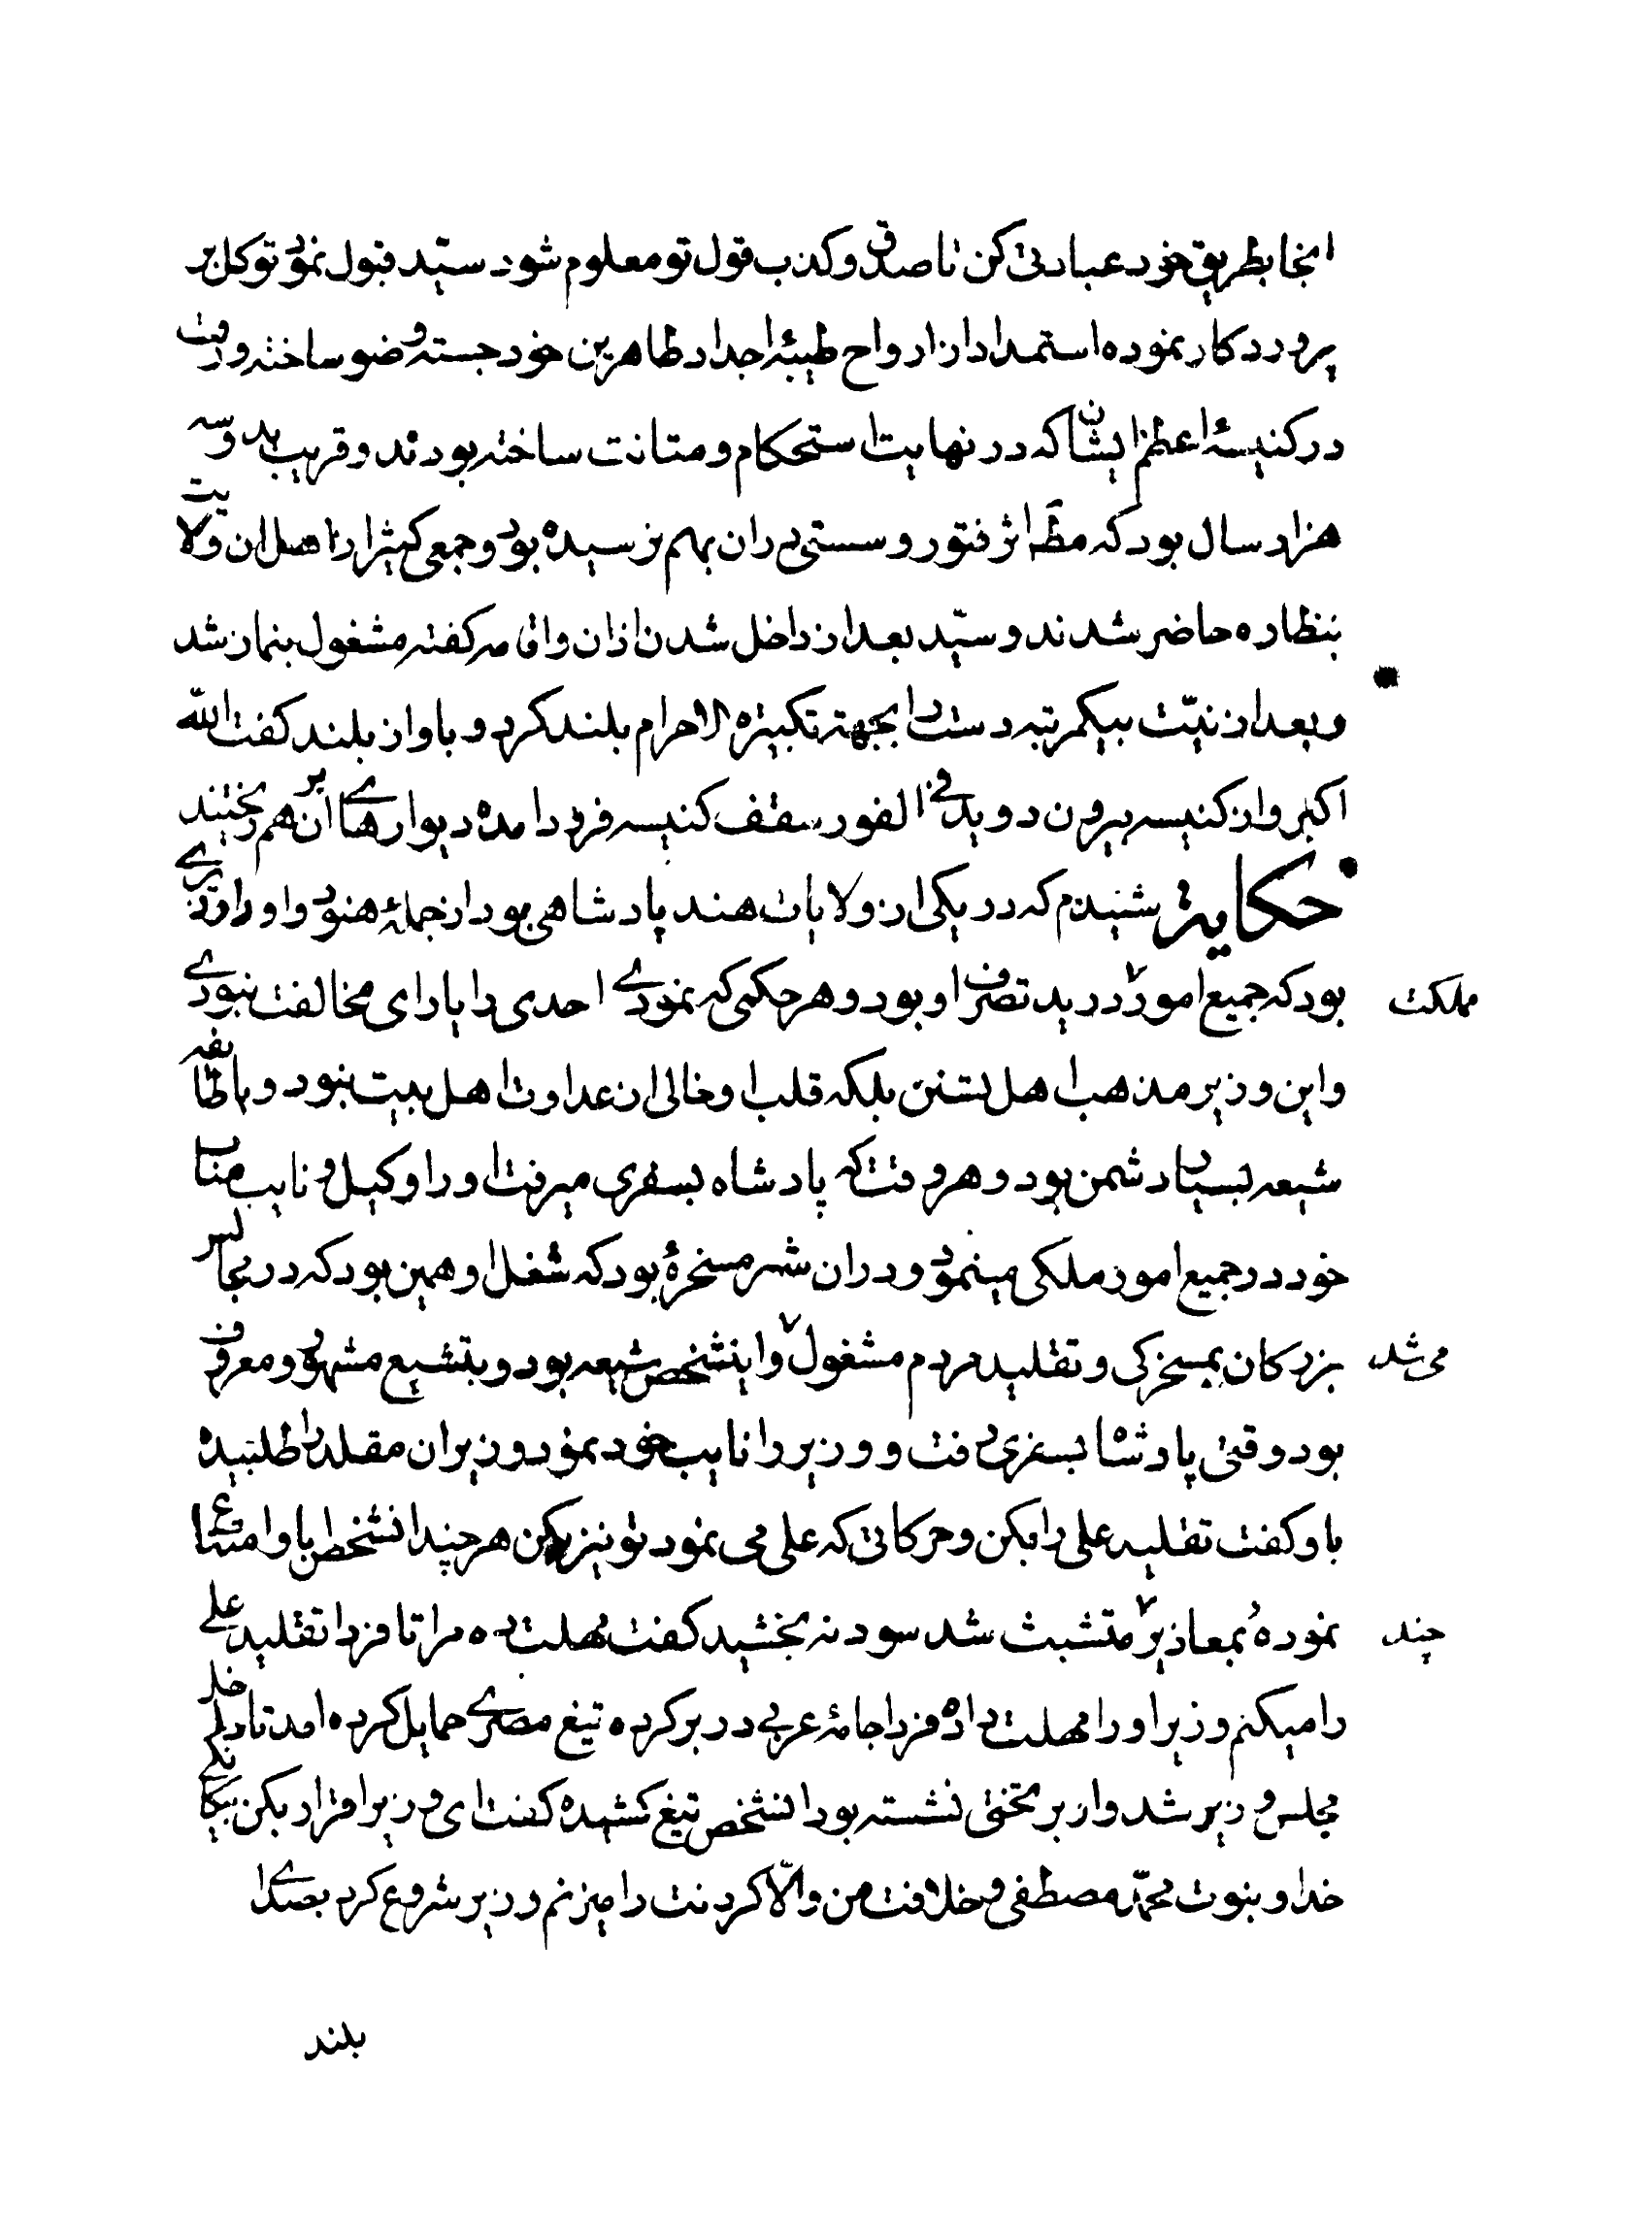 انجا بطریق خود عبادتی کن تا صدق و کذب قول تو معلوم شود سیّد قبول نمود توکل بر
پروردکار نموده استمداد از ارواح طیبهٔ اجداد طاهرین خود جسته وضو ساخته و رفت
در کنیسهٔ اعظم ایشان که در نهایت استحکام و متانت ساخته بودند و قریب بدو سه
هزار سال بود که مظنّه اثر فتور و سستی دران بهم نرسیده بود و جمعی کثیر از اهل ان ولایت
بنظاره حاضر شدند و سیّد بعد از داخل شدن اذان و اقامه کفته مشغول بنماز شد
و بعد از نیّت بیکمرتبه دست را بجهته تکبیرة الاحرام بلند کرد و باواز بلند کفت الله
اکبر و از کنیسه بیرون دوید فی الفور سقف کنیسه فرود امده دیوارهای ان بر هم ریختند
حکایة شنیدم که در یکی از ولایات هند پادشاهی بود از جملهٔ هنود و او را وزیری
بود که جمیع امور مملکت در ید تصرف او بود و هر حکمی که نمودی احدی را یارای مخالفت نبودی
و این وزیر مذهب اهل تسنن بلکه قلب او خالی از عداوت اهل بیت نبود و با طایفه
شیعه بسیار دشمن بود و هر وقت که پادشاه بسفری میرفت او را وکیل و نایب مناب
خود در جمیع امور ملکی مینمود و دران شهر مسخرهٔ بود که شغل او همین بود که در مجالس
بزرکان بمسخرکی و تقلید مردم مشغول می شد و اینشخص شیعه بود و بتشیع مشهور و معروف
بود وقتی پادشاه بسفری رفت و وزیر را نایب خود نمود وزیر ان مقلد را طلبیده
باو کفت تقلید علی را بکن و حرکاتی که علی می نمود تو نیز بکن هر چند انشخص با و امتناع
نموده بمعاذیر چند متشبث شد سود نه بخشید کفت مهلت ده مرا تا فردا تقلید علی
را میکنم وزیر او را مهلت داده فردا جامهٔ عربی در بر کرده تیغ مصری حمایل کرده امد تا داخل
مجلس وزیر شد و از بر تختی نشسته بود انشخص تیغ کشیده کفت ای وزیر اقرار بکن بیکانکی
خدا و بنبوت محمّد مصطفی و خلافت من و الّا کردنت را میزنم وزیر شروع کرد بصدای
بلند